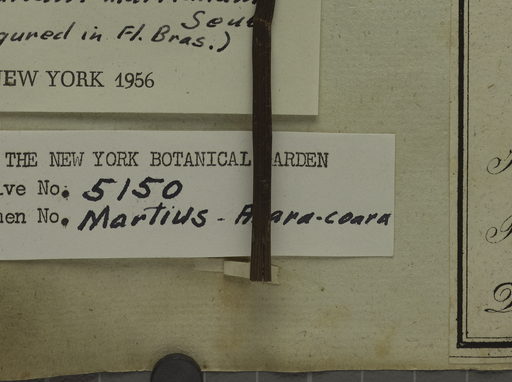 gured in Fl. Bras.)
NEW YORK 1956
THE NEW YORK BOTANICAL ARDEN
ive No. 5150
men No. Martius - A ara-coara